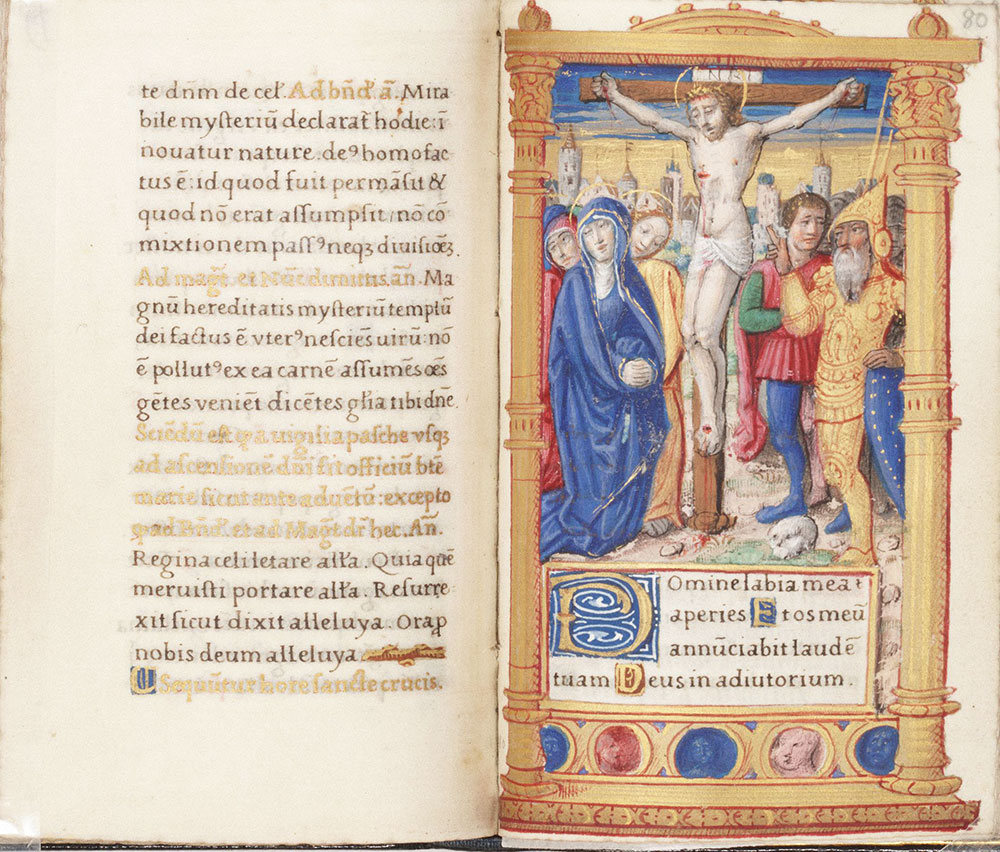 te dn̄m de cel̉. Ad bn̄d̉ ā. Mira
bile mysteriū declarat̉ hodie: ī
nouatur nature. deꝰ homo fac
tus ē: id quod fuit permāsit &
quod nō erat assumpsit: nō cō
mixtionem passꝰ neqꝫ diuisiōeꝫ
Ad mag̅t̉. et Nūc dimittis. añ. Ma
gnū hereditatis mysteriū templū
dei factus ē vterꝰ nesciēs uirū: nō
ē pollutꝰ ex ea carnē assumēs oēs
gētes veniēt dicētes gl̄ia tibi dn̄e.
Sciēdū est qa uigilia pasche vsqꝫ
ad ascensionē dn̄i fit officiū bt̄e
marie sicut ante aduētū: excepto
qad Bn̄d̉. et ad Mag̅t̉ dr̄ hec. An̄.
Regina celi letare allā. Quia quē
meruisti portare allā. Resurre
xit sicut dixit alleluya. Ora p̄
nobis deum alleluya
Sequūtur hore sancte crucis.
80
Domine labia mea
aperies Et os meū
annūciabit laudē
tuam Deus in adiutorium.